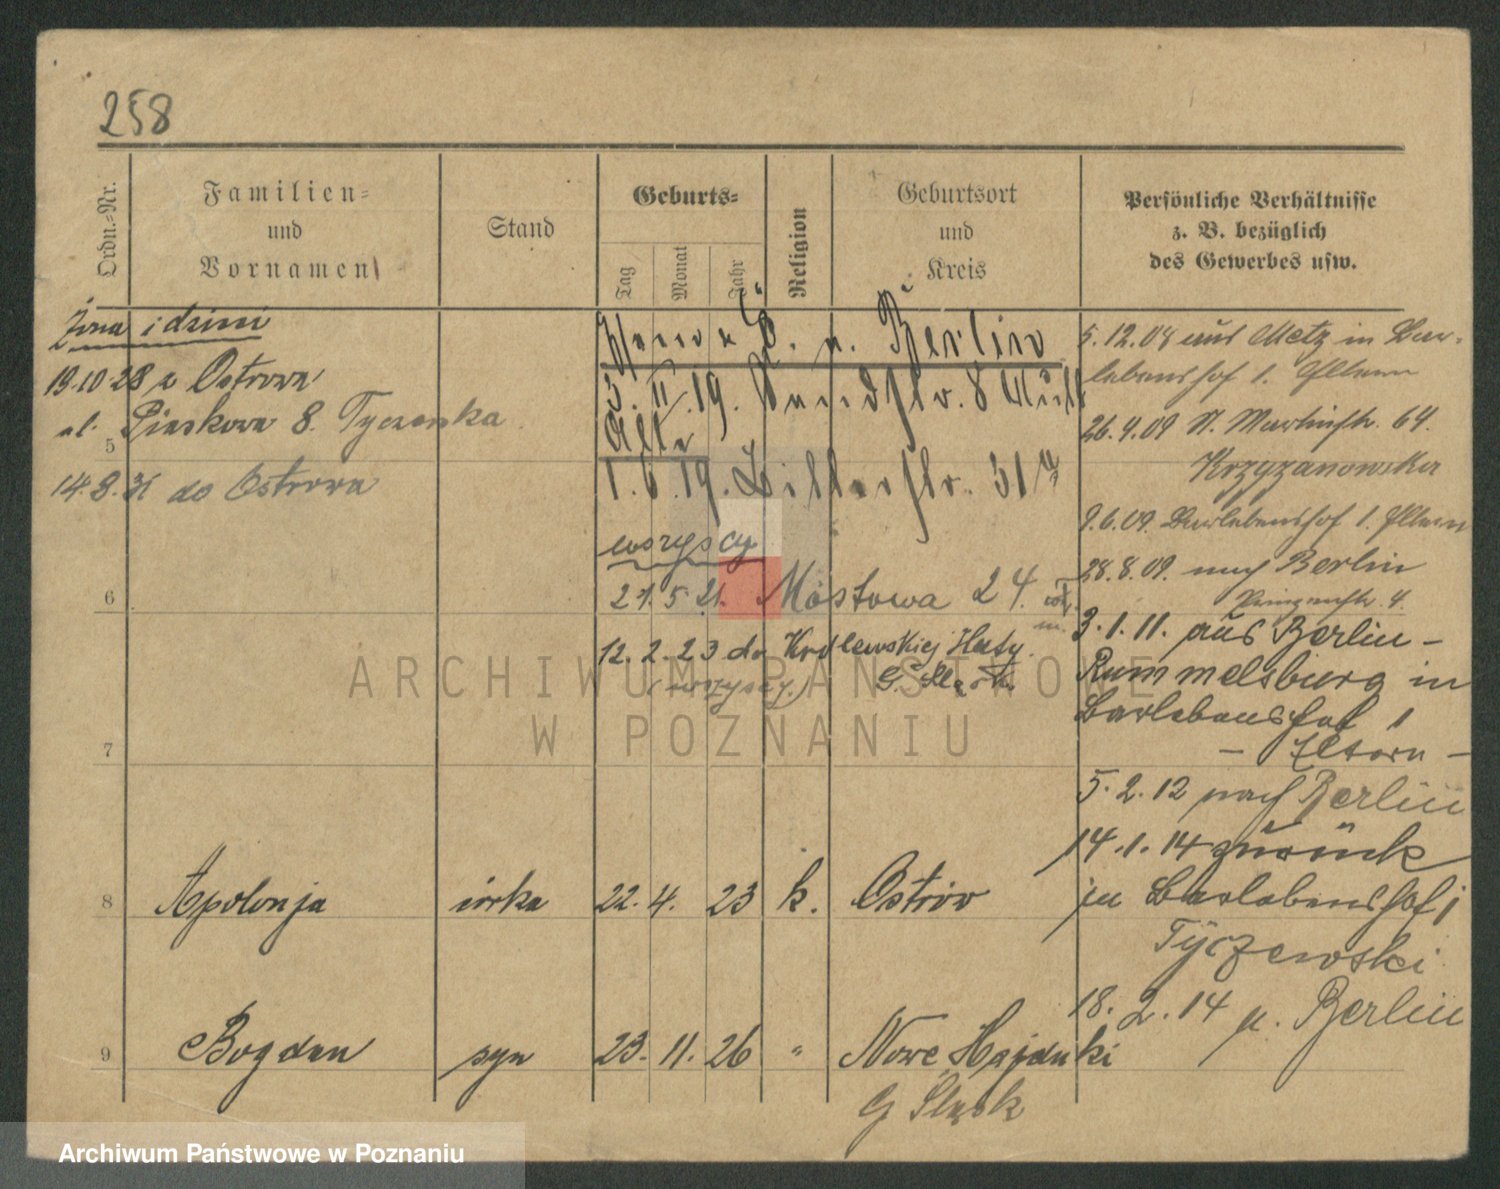 258
Ordn.-Nr.
Familien-
und
Vornamen
Stand
Geburts-
Tag
Monat
Jahr
Religion
Geburtsort
und
Kreis
Persönliche Verhältnisse
z. B. bezüglich
des Gewerbes usw.
Żona i dzieci
19.10.28 z Ostrowa
ul. Piaskowa 8.
5
14.8.31 do Ostrowa
u. Berlin
3.11.19.
1.6.19. 31a
wszyscy
21.5.21. Mostowa 24.
12.2.23 do Królewskiej Huty
(wszyscy) G. Śląsk.
5.12.08 aus Metz in
26.4.09 St. Martinstr. 64.
Krzyzanowska
9.6.09.
28.8.09. nach Berlin
3.1.11. aus Berlin -
Rummelsburg in
Barlebenshof 1
- Eltern -
5.2.12 nach Berlin
14.1.14 zurück
in Barlebenshof 1
Tyczewski
18.2.14 n. Berlin
6
7
8 Apolonja córka 22. 4. 23 k. Ostrów
9 Bogdan syn 23. 11. 26 " Nowe Hajduki
G Śląsk
ARCHIWUM PAŃSTWOWE
W POZNANIU
Archiwum Państwowe w Poznaniu